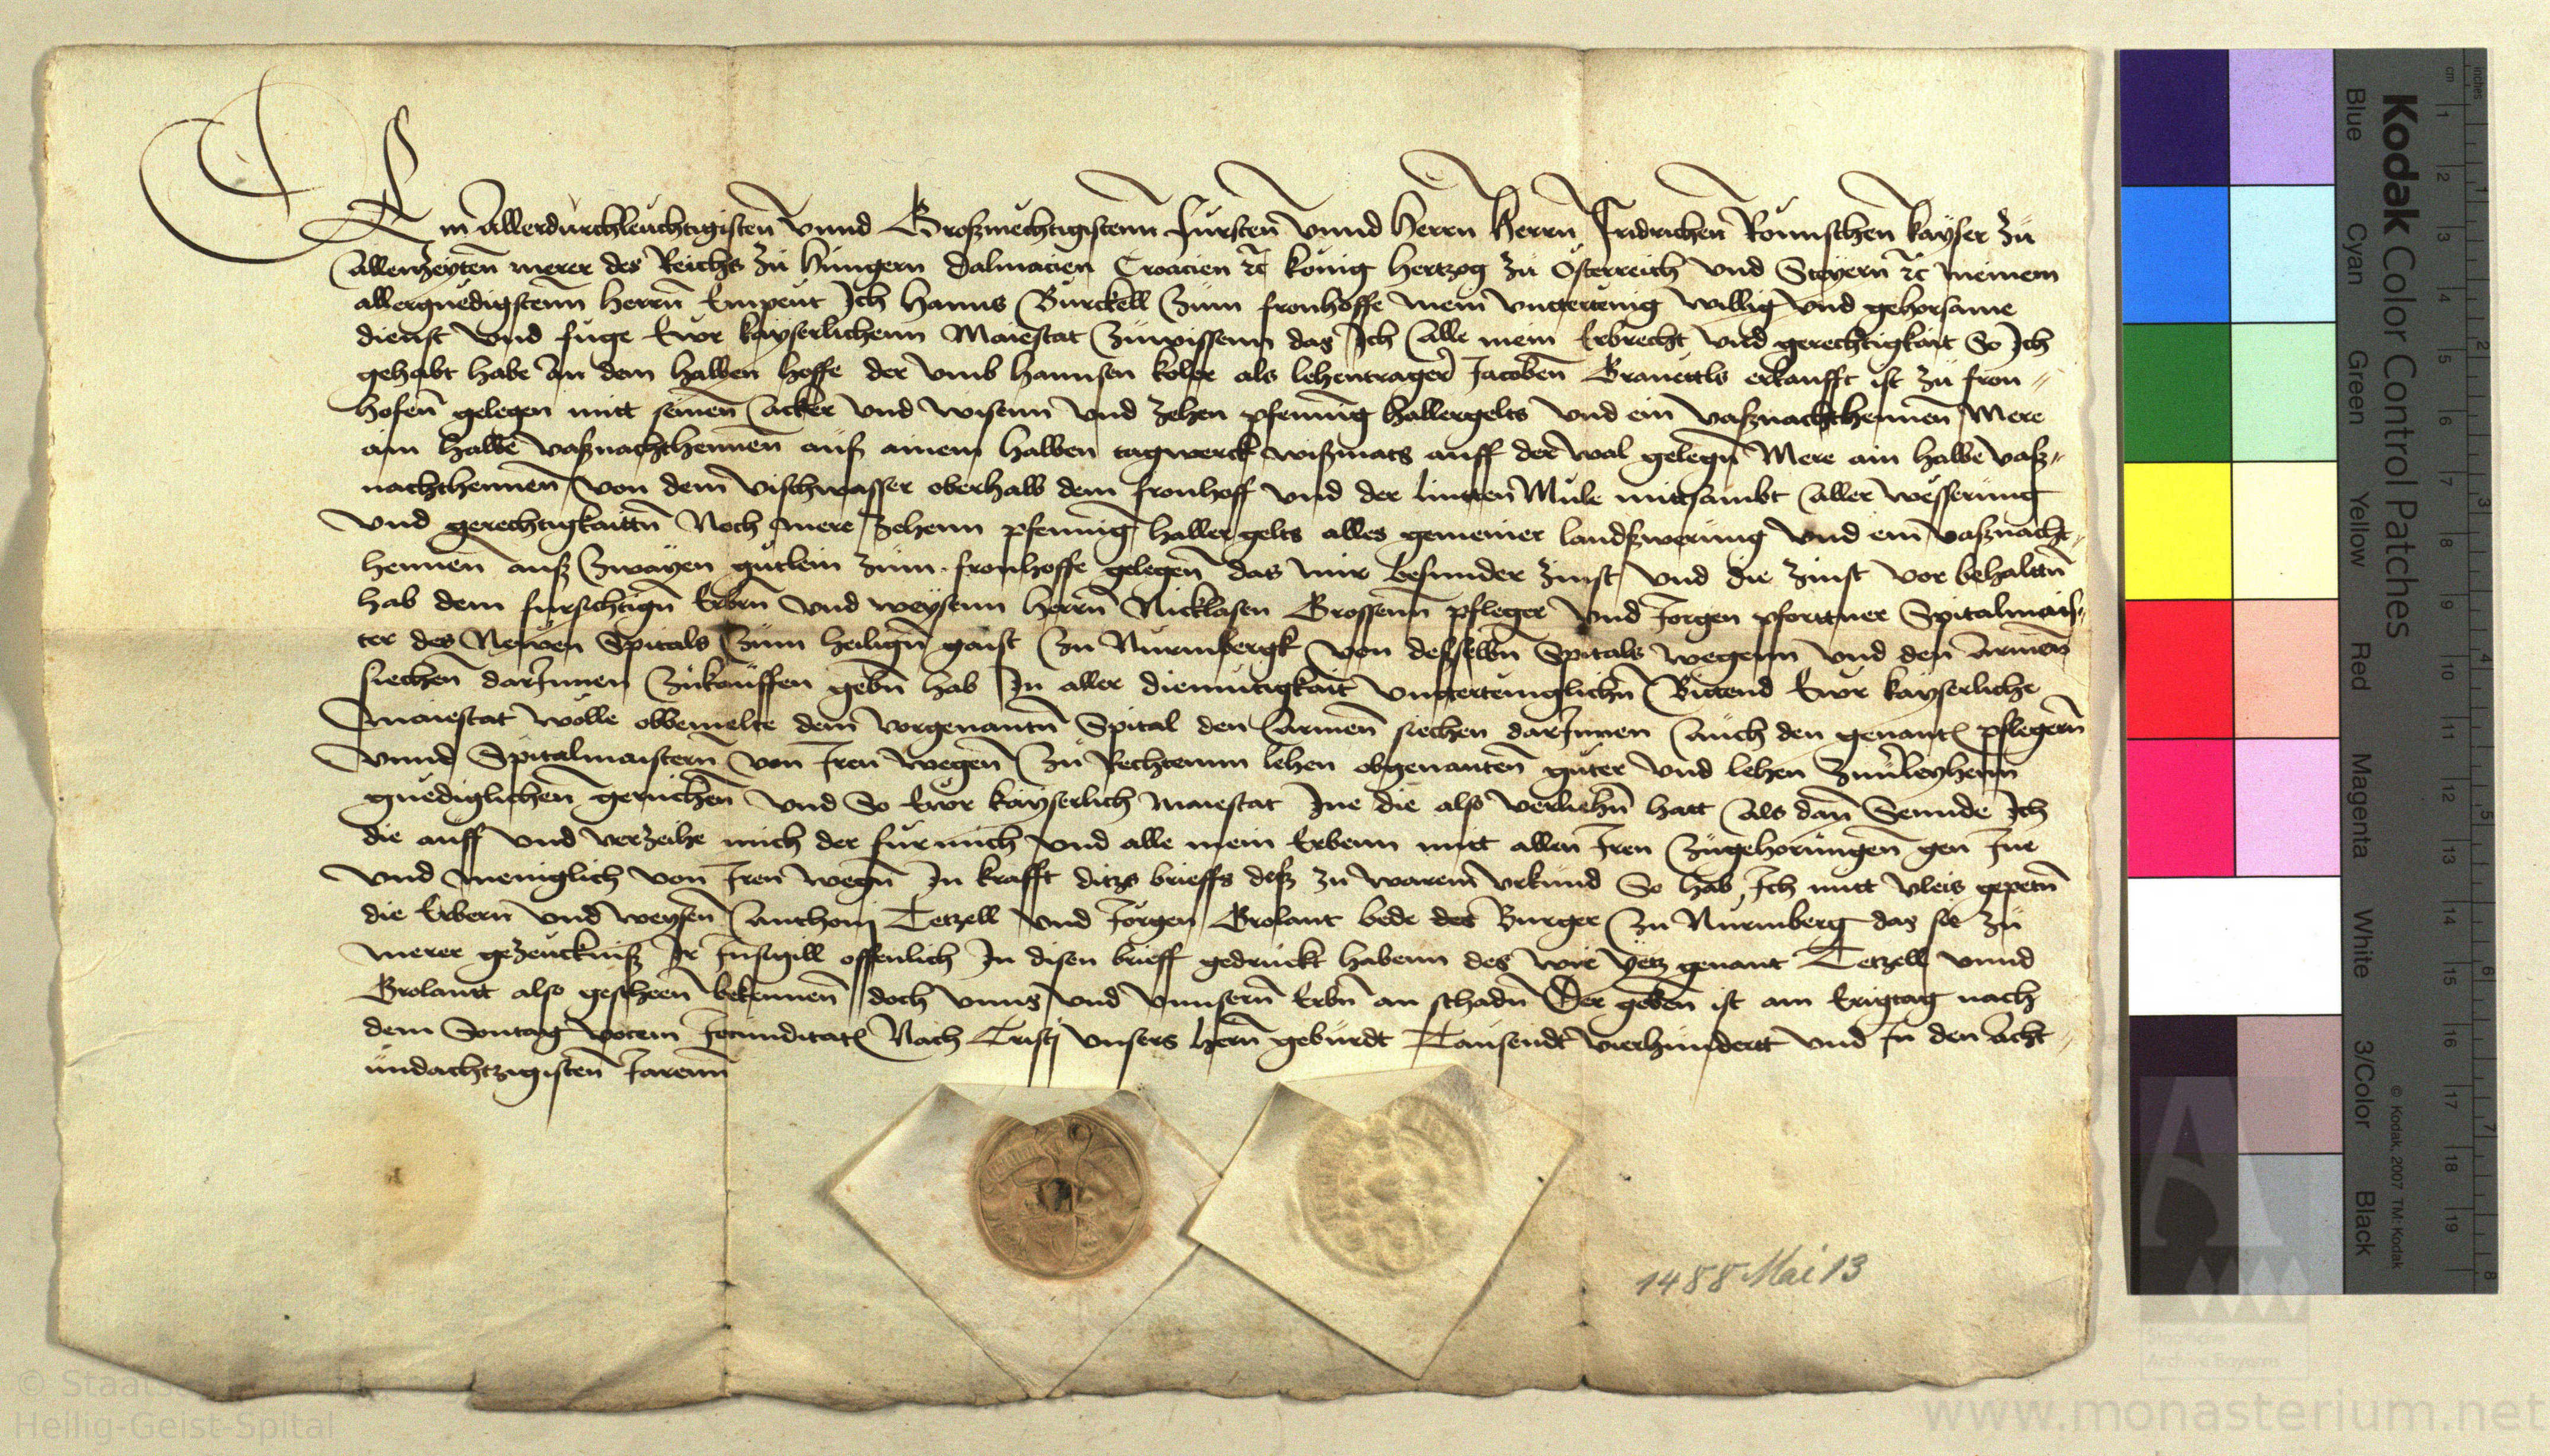 Dem Allerdurchleuchtigisten Vnnd Großmechtigistenn fursten Vnnd Herrn Herrn Fridrichen Römischen kayser zu
Allenzeyten merer des Reichs zu Hungern Dalmacien Croacien ꝛc̃ könig Hertzog zu Österreich vnd Steyern ꝛc̃ meinem
allergnedigstenn herrn Empeut Ich Hanns Bürckell Zum fronhoffe mein vntertenig willig vnd gehorsame
dienst vnd fuge Ewr kayserlichenn Maiestat Zuwissenn das Ich Alle mein Erbrecht vnd gerechtigkait So Ich
gehabt habe An dem halben hoffe der vmb Hannsen koler als lehentrager Jacoben erkaufft ist zu fron-
hofen gelegen mitt seinen Acker vnd wisenn vnd zehen pfenning hallergelts vnd ein vaßnachthennen Mere
ain halbe vaßnachthennen auß ainem halben tagwerck wißmats auff der wal gelegn Mere ain halbe vaß-
nachthennen von dem vischwasser oberhalb dem fronhoff vnd der Mule mittsambt Aller wesserung
vnd gerechtigkaittn Noch mere zehenn pfenning haller gelts alles gemeiner landßwerung vnd ein vaßnacht-
hennen auß Zwayen gutlein zum fronhoffe gelegen das mir besunder zinst vnd die zinst vor behaltn
hab dem fursichtign Erbrn vnd weysenn herrn Nicklasen Grossenn pfleger vnd Jorgen pforttner Spitalmais-
ter des Newen Spitals Zum heiligen gaist Zu Nurmbergk von desselbn Spitals wegenn vnd den Armen
siechen darInnen Zukauffen gebn hab In aller diemutigkait vnttertenigklichn Bittend Ewr kayserliche
maiestat wolle obbemelte dem vorgenantn Spital den Armen siechen darInnen Auch den genanten pflegern
vnnd Spitalmaistern von Iren wegen Zu Rechtenn lehen obgenanten guter vnd lehen Zuuerleyhenn
gnediglichen geruchen vnd So Ewr kayserlich maiestat Ine die also verliehn hatt Als dan Sennde Ich
die auff vnd verzeihe mich der fur mich vnd alle mein Erbenn mitt allen Iren Zugehorungen gen Ine
vnd meniglich von Iren wegn In krafft ditzs brieffs deß zu warem vrkund So hab Ich mitt vleis gepetn
die Erbern vnd weysen Anthonj Tetzell vnd Jorgen Brolant bede des Burger Zu Nurmberg das sie zu
merer gezeucknüß Ir Innsigill offenlich In disen brieff gedruckt habenn des wir yetz genant Tetzell vnnd
Brolantt also gescheen bekennen doch vnns vnd vnnsern Erbn an schadn Der geben ist am Erigtag nach
dem Sontag vocem Jocunditatis Nach Cristj vnsers hern geburdt Tausendt vierhundertt vnd In den Acht-
undachtzigisten Jarenn
1488 Mai 13
Kodak Color Control Patches
Blue Cyan Green Yellow Red Magenta White 3/Color Black
© Kodak, 2007 TM: Kodak
inches 1 2 3 4 5 6 7 8
cm 1 2 3 4 5 6 7 8 9 10 11 12 13 14 15 16 17 18 19
Heilig-Geist-Spital
www.monasterium.net